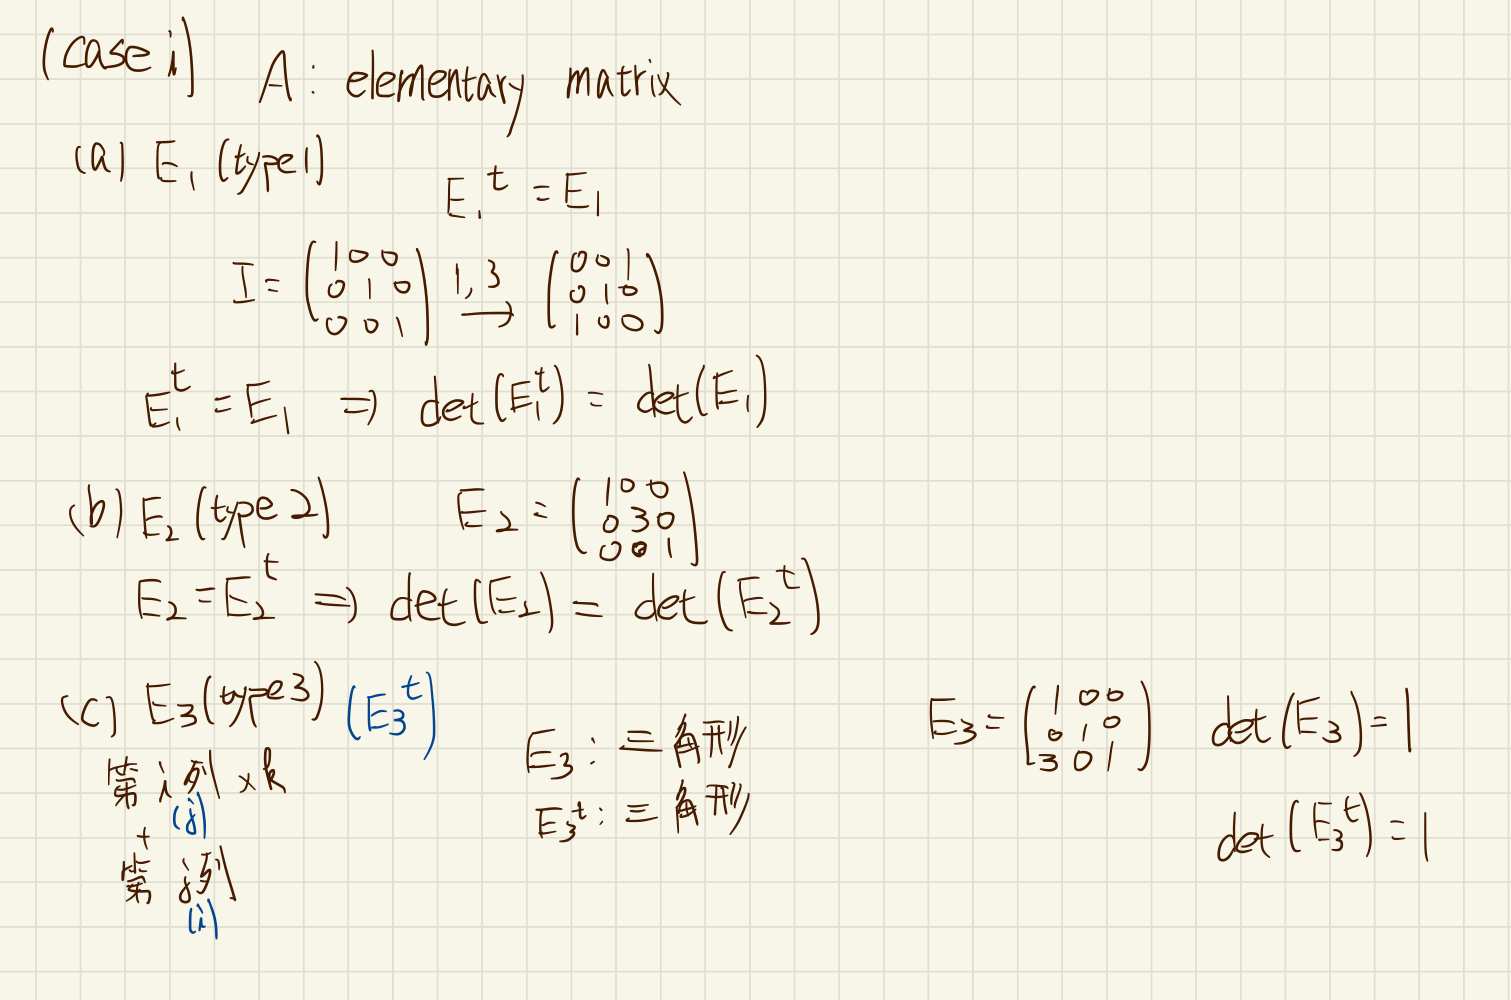 (case i) A: elementary matrix
(a) E₁ (type1)
E₁ᵗ = E₁
I = (1 0 0 / 0 1 0 / 0 0 1) 1,3 → (0 0 1 / 0 1 0 / 1 0 0)
E₁ᵗ = E₁ ⇒ det(E₁ᵗ) = det(E₁)
(b) E₂ (type 2) E₂ = (1 0 0 / 0 3 0 / 0 0 1)
E₂ = E₂ᵗ ⇒ det(E₂) = det(E₂ᵗ)
(c) E₃(type3) (E₃ᵗ)
第 i 列 × k
(j)
+
第 j 列
(i)
E₃: 三角形
E₃ᵗ: 三角形
E₃ = (1 0 0 / 0 1 0 / 3 0 1) det(E₃) = 1
det(E₃ᵗ) = 1